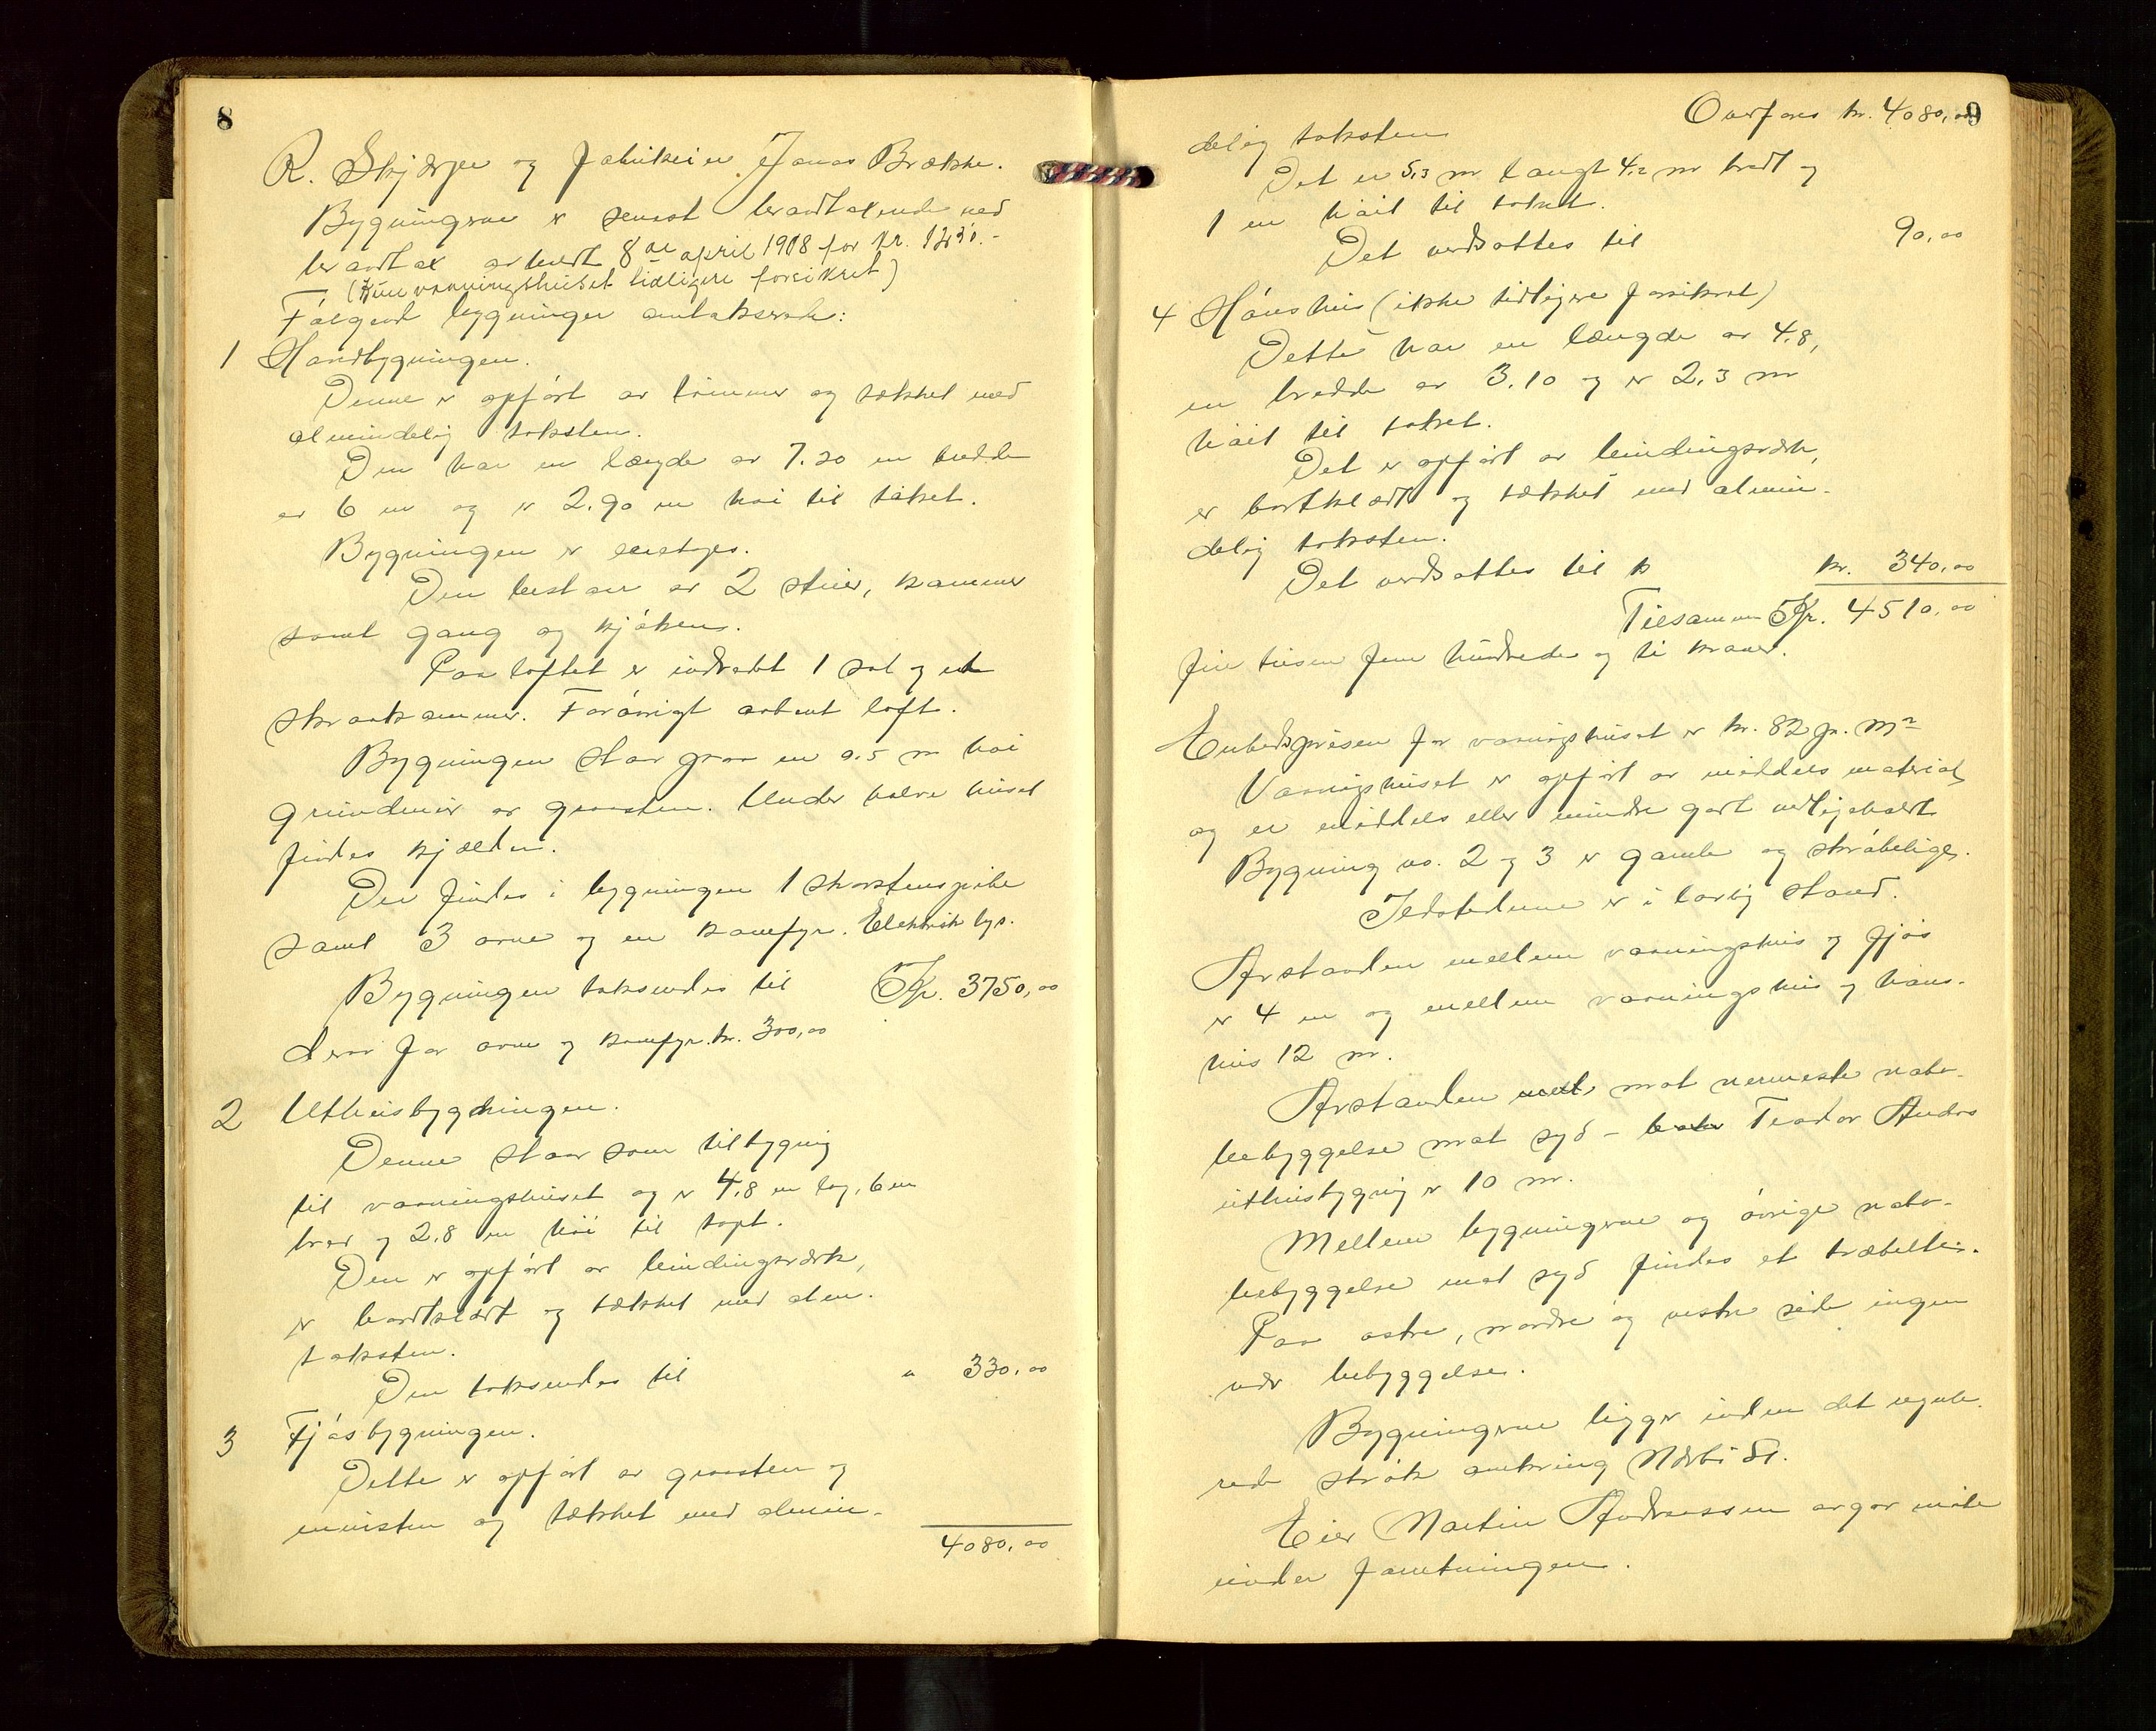 8
R. Skjærpe og fabrikeier Jonas Brække.
Bygningerne er senest brandtakserede ved
brandtax avholdt 8de april 1918 for kr. 1250.-
(Kun vaaningshuset tidligere forsikret)
Følgende bygninger omtakserede:
1 Hovedbygningen.
Denne er opført av tømmer og tækket med
almindelig taksten.
Den har en længde av 7.20 en bredde
av 6 m og er 2.90 m høi til taket.
Bygningen er enetages.
Den bestaar av 2 stuer, kammer
samt gang og kjøken.
Paa loftet er indredet 1 sal og et
skraakammer. Forøvrigt aapent loft.
Bygningen staar paa en 0.5 m høi
grundmur av graasten. Under halve huset
findes kjælder.
Der findes i bygningen 1 skorstenspibe
samt 3 ovne og en komfyr. Elektrisk lys.
Bygningen takseredes til Kr. 3750,00
derav for ovne og komfyr kr. 300,00
2 Uthusbygningen.
Denne staar som tilbygning
til vaaningshuset og er 4,8 m lag, 6 m
bred og 2,8 m høi til tapt.
Den er opført av bindingsværk,
er bordklædt og tækket med alm.
taksten.
Den takseredes til " 330,00
3 Fjøsbygningen.
Dette er opført av graasten og
mursten og tækket med almin-
4080,00
9
Overføres kr. 4080,00
delig taksten
Det er 5,3 m langt 4,2 m bredt og
1 m høit til taket.
Det verdsattes til 90,00
4 Hønshus (ikke tidligere forsikret)
Dette har en længde av 4.8,
en bredde av 3.10 og er 2.3 m
høit til taket.
Det er opført av bindingsværk,
er bordklædt og tækket med almin-
delig taksten.
Det verdsattes til k kr. 340,00
Tilsammen Kr. 4510,00
fire tusen fem hundrede og ti kroner.
Enhedsprisen for vaaningshuset er kr. 82 pr. m2
Vaaningshuset er opført av middels material
og er middels eller mindre godt vedlikeholdt
Bygning no. 2 og 3 er gamle og skrøbelige.
Ildstederne er i lovlig stand.
Avstanden mellem vaaningshus og fjøs
er 4 m og mellem vaaningshus og høns-
hus 12 m.
Avstanden mot nermeste nabo-
bebyggelse mot syd - Teodor Andas
uthusbygning er 10 m.
Mellem bygningerne og øvrige nabo-
bebyggelse mot syd findes et træbelte.
Paa østre, nordre og vestre side ingen
nær bebyggelse.
Bygningerne ligger inden det regule-
rede strøk omkring Nærbø St.
Eier Martin Andreassen avgav møte
under forretningen.